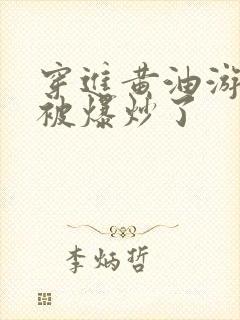 穿进黄油游
被爆炒了
李炳哲